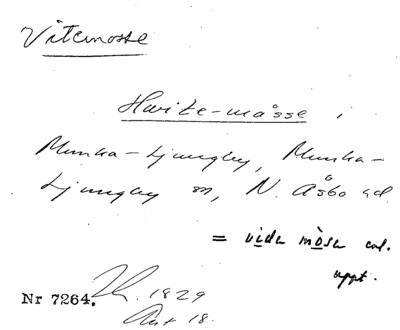 Vitemosse
Hvite-måsse,
Munka-Ljungby, Munka-
Ljungby sn, N. Åsbo hd.
= vida mòsa enl.
uppt.
Nr 7264. 1829
Akt 18.